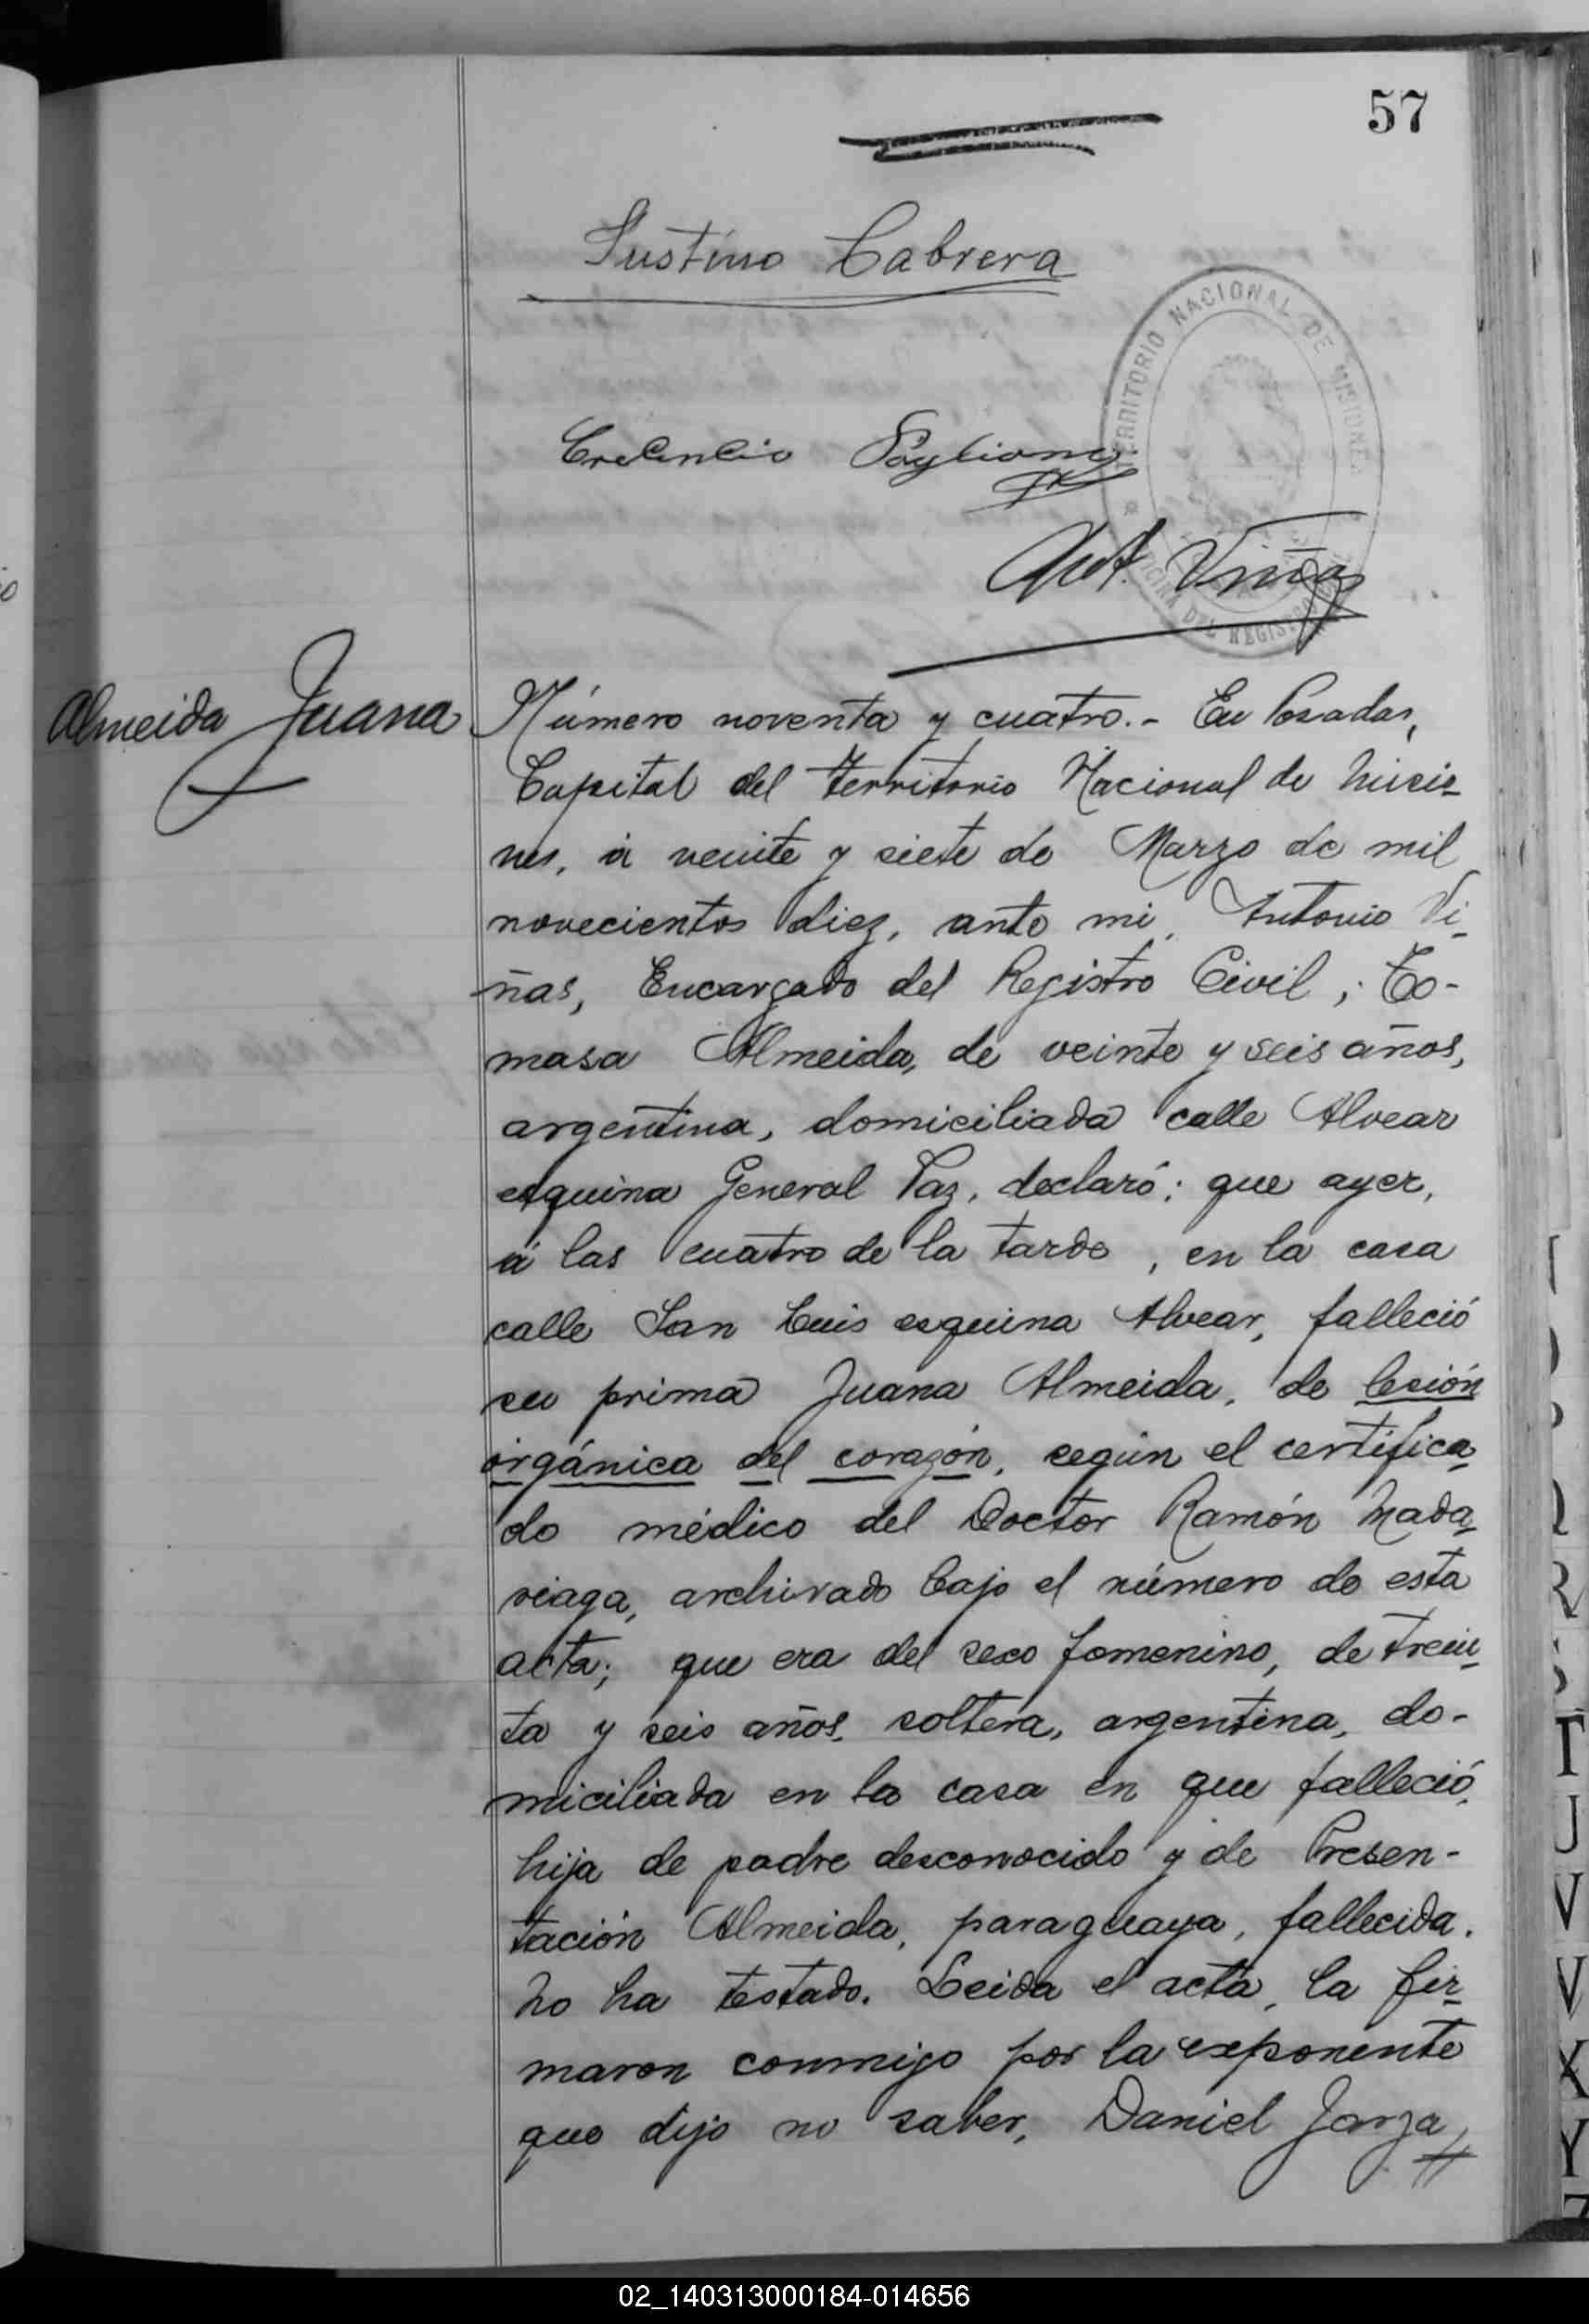 57
Justino Cabrera
TERRITORIO NACIONAL DE MISIONES
OFICINA DEL REGISTRO
Crecencio
Ant. Viñas
Almeida Juana
Número noventa y cuatro.- En Posadas,
Capital del Territorio Nacional de Misio-
nes, á veinte y siete de Marzo de mil
novecientos diez, ante mi, Antonio Vi-
ñas, Encargado del Registro Civil; To-
masa Almeida, de veinte y seis años,
argentina, domiciliada calle Alvear
esquina General Paz, declaró: que ayer,
á las cuatro de la tarde, en la casa
calle San Luis esquina Alvear, falleció
su prima Juana Almeida, de lesión
orgánica del corazón, según el certifica-
do médico del Doctor Ramón Mada-
riaga, archivado bajo el número de esta
acta; que era del sexo femenino, de trein-
ta y seis años, soltera, argentina, do-
miciliada en la casa en que falleció,
hija de padre desconocido y de Presen-
tación Almeida, paraguaya, fallecida.
No ha testado. Leida el acta, la fir-
maron conmigo por la exponente
que dijo no saber, Daniel Jarza
02_140313000184-014656